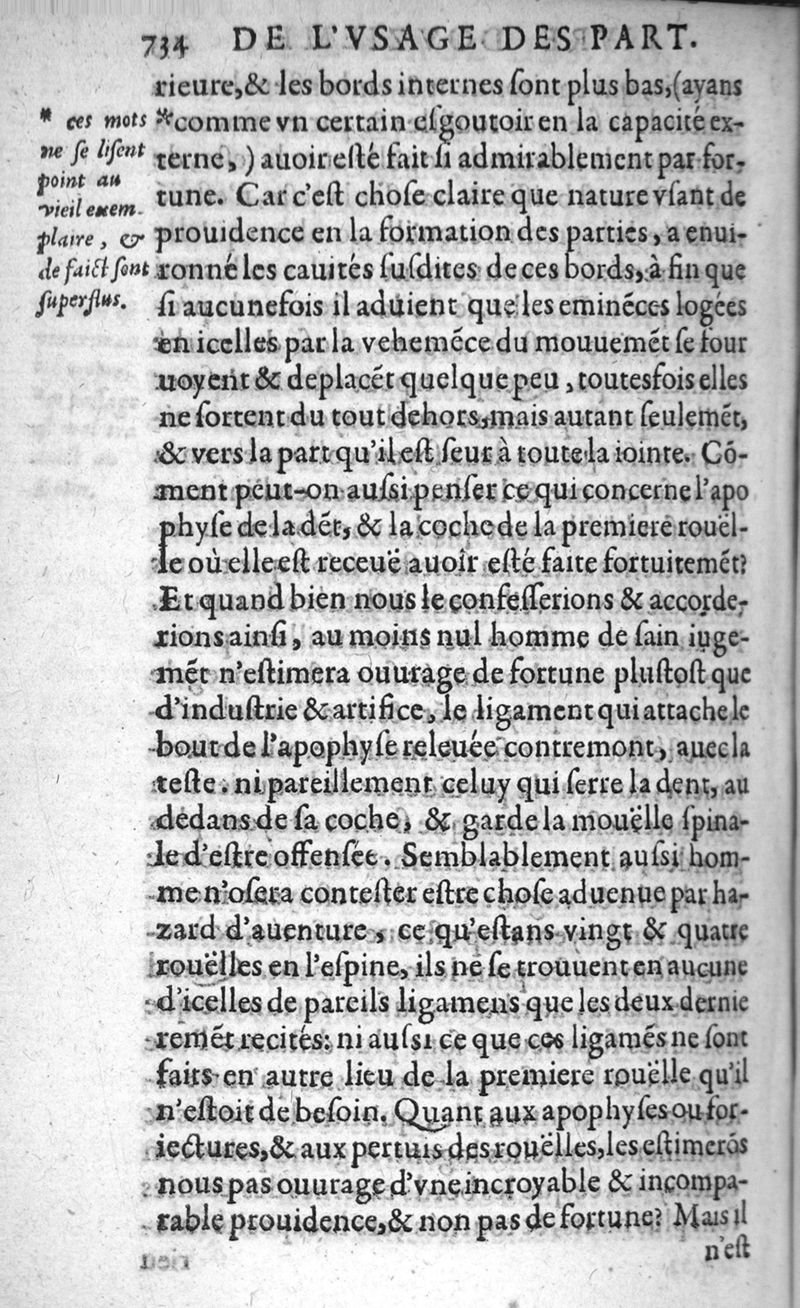 734 DE L'VSAGE DES PART.
rieure,& les bords internes ſont plus bas,(ayans
*comme vn certain eſgoutoir en la capacité ex-
terne, ) auoir eſté fait ſi admirablement par for-
tune. Car c'eſt choſe claire que nature vſant de
prouidence en la formation des parties, a enui-
ronné les cauités ſuſdites de ces bords, à fin que
ſi aucunefois il aduient que les eminẽces logées
en icelles par la vehemẽce du mouuemẽt ſe four
uoyent & deplacẽt quelque peu, toutesfois elles
ne ſortent du tout dehors,mais autant ſeulemẽt,
& vers la part qu'il eſt ſeur à toute la iointe. Cõ-
ment peut-on auſsi penſer ce qui concerne l'apo
phyſe de la dẽt, & la coche de la premiere rouël-
le où elle eſt receuë auoir eſté faite fortuitemẽt?
Et quand bien nous le confeſſerions & accorde-
rions ainſi, au moins nul homme de ſain iuge-
mẽt n'eſtimera ouurage de fortune pluſtoſt que
d'induſtrie & artifice, le ligament qui attache le
bout de l'apophyſe releuée contremont, auec la
teſte: ni pareillement celuy qui ſerre la dent, au
dedans de ſa coche, & garde la mouëlle ſpina-
le d'eſtre offenſée. Semblablement auſsi hom-
me n'oſera conteſter eſtre choſe aduenue par ha-
zard d'auenture, ce qu'eſtans vingt & quatre
rouëlles en l'eſpine, ils ne ſe trouuent en aucune
d'icelles de pareils ligamens que les deux dernie
remẽt recités: ni auſsi ce que ces ligamẽs ne ſont
faits en autre lieu de la premiere rouëlle qu'il
n'eſtoit de beſoin. Quant aux apophyſes ou for-
iectures,& aux pertuis des rouëlles,les eſtimerõs
nous pas ouurage d'vne incroyable & incompa-
rable prouidence,& non pas de fortune? Mais il
n'eſt
* ces mots
ne ſe liſent
point au
vieil exem-
plaire, &
de faict ſont
ſuperflus.